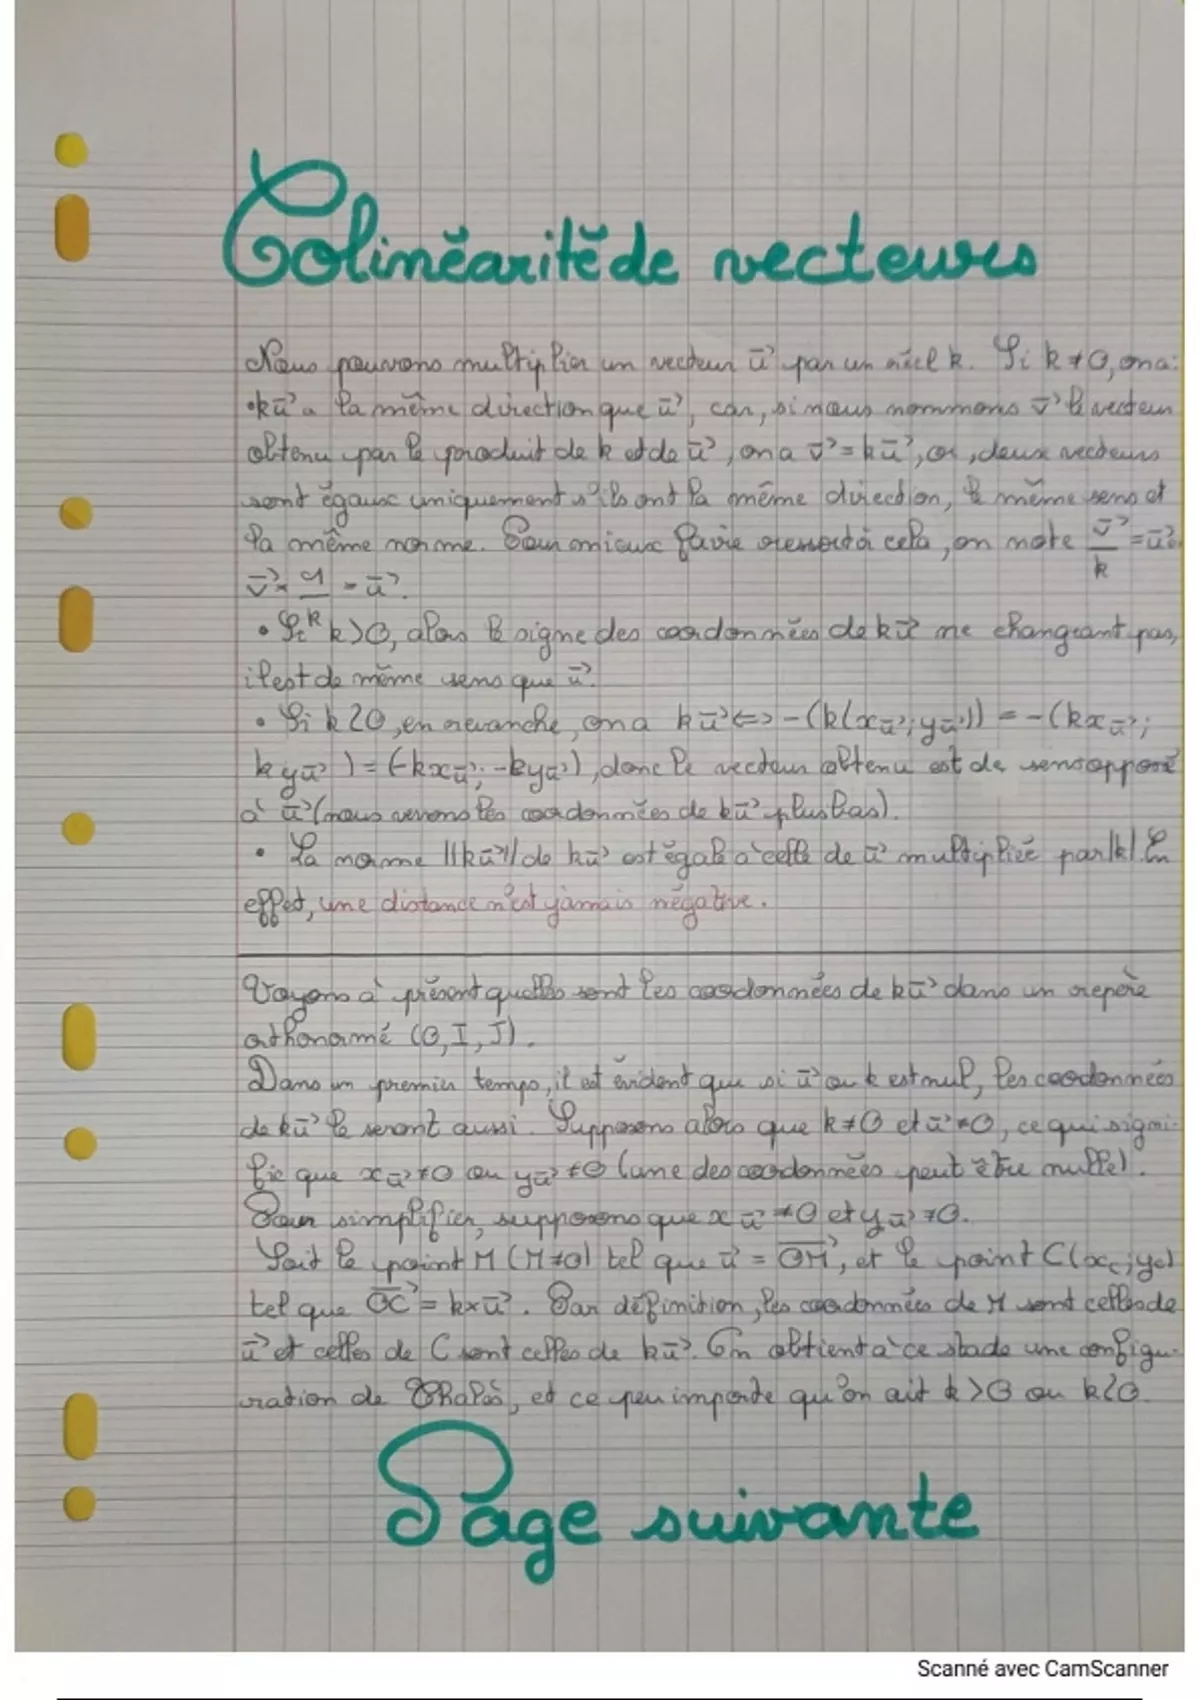 Colinéarité de vecteurs
Nous pouvons multiplier un vecteur u⃗ par un réel k. Si k≠0, on a:
•ku⃗ a la même direction que u⃗, car, si nous nommons v⃗ le vecteur
obtenu par le produit de k et de u⃗, on a v⃗=ku⃗, or, deux vecteurs
sont égaux uniquement s'ils ont la même direction, le même sens et
la même norme. Pour mieux faire ressortir cela, on note v⃗/k = u⃗
v⃗×1/k = u⃗.
• Si k>0, alors le signe des coordonnées de ku⃗ ne changeant pas,
il est de même sens que u⃗.
• Si k<0, en revanche, on a ku⃗ ⇔ -(k(xu⃗; yu⃗)) = -(kxu⃗;
kyu⃗) = (-kxu⃗; -kyu⃗), donc le vecteur obtenu est de sens opposé
à u⃗ (nous verrons les coordonnées de ku⃗ plus bas).
• La norme ||ku⃗|| de ku⃗ est égale à celle de u⃗ multiplié par |k|. En
effet, une distance n'est jamais négative.
Voyons à présent quelles sont les coordonnées de ku⃗ dans un repère
orthonormé (O, I, J).
Dans un premier temps, il est évident que si u⃗ ou k est nul, les coordonnées
de ku⃗ le seront aussi. Supposons alors que k≠0 et u⃗≠0, ce qui signi-
fie que xu⃗≠0 ou yu⃗≠0 (une des coordonnées peut être nulle).
Pour simplifier, supposons que xu⃗≠0 et yu⃗≠0.
Soit le point M (M≠O) tel que u⃗ = OM⃗, et le point C(xc; yc)
tel que OC⃗ = k×u⃗. Par définition, les coordonnées de M sont celles de
u⃗ et celles de C sont celles de ku⃗. On obtient à ce stade une configu-
ration de Thalès, et ce peu importe qu'on ait k>0 ou k<0.
Page suivante
Scanné avec CamScanner